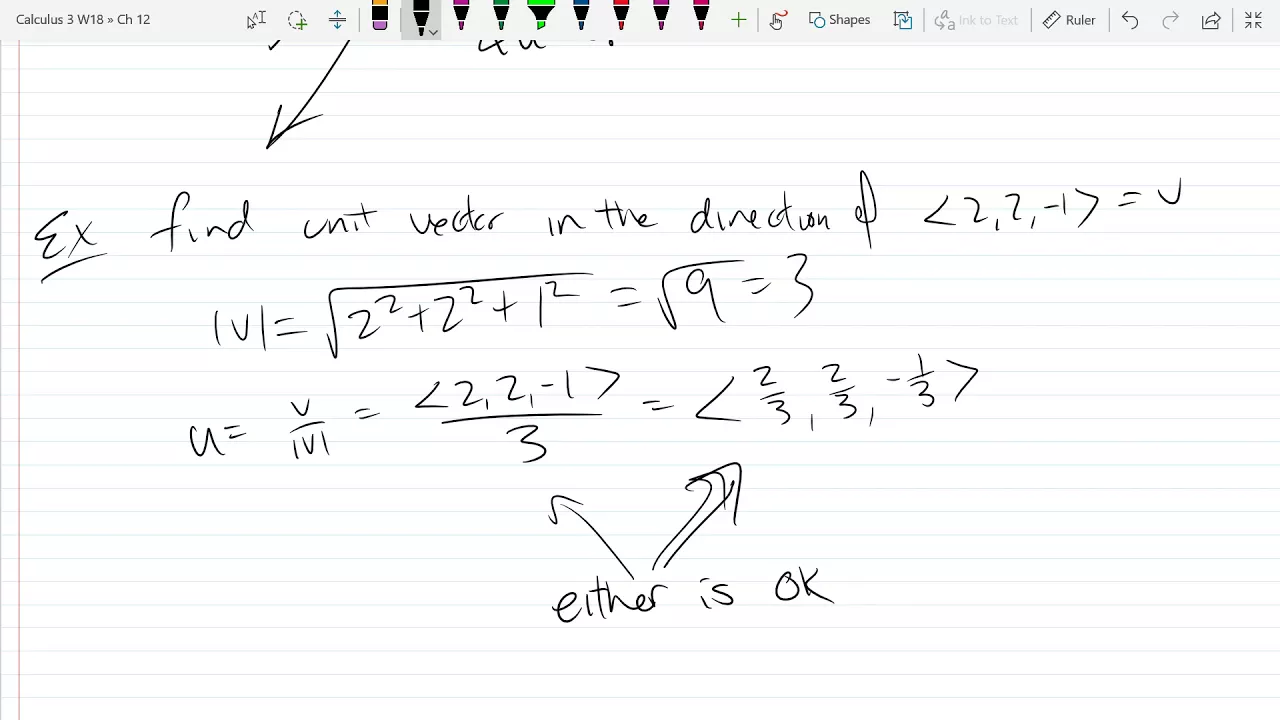 Calculus 3 W18 » Ch 12
Shapes
Ink to Text
Ruler
Ex find unit vector in the direction of <2, 2, -1> = v
|v| = √(2² + 2² + 1²) = √9 = 3
u = v/|v| = <2, 2, -1>/3 = <2/3, 2/3, -1/3>
either is OK